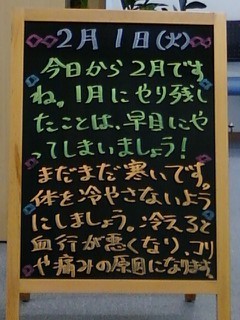 2月1日(火)
今日から2月です
ね。1月にやり残し
たことは、早目にや
ってしまいましょう!
まだまだ寒いです。
体を冷やさないよう
にしましょう。冷えると
血行が悪くなり、コリ
や痛みの原因になります。